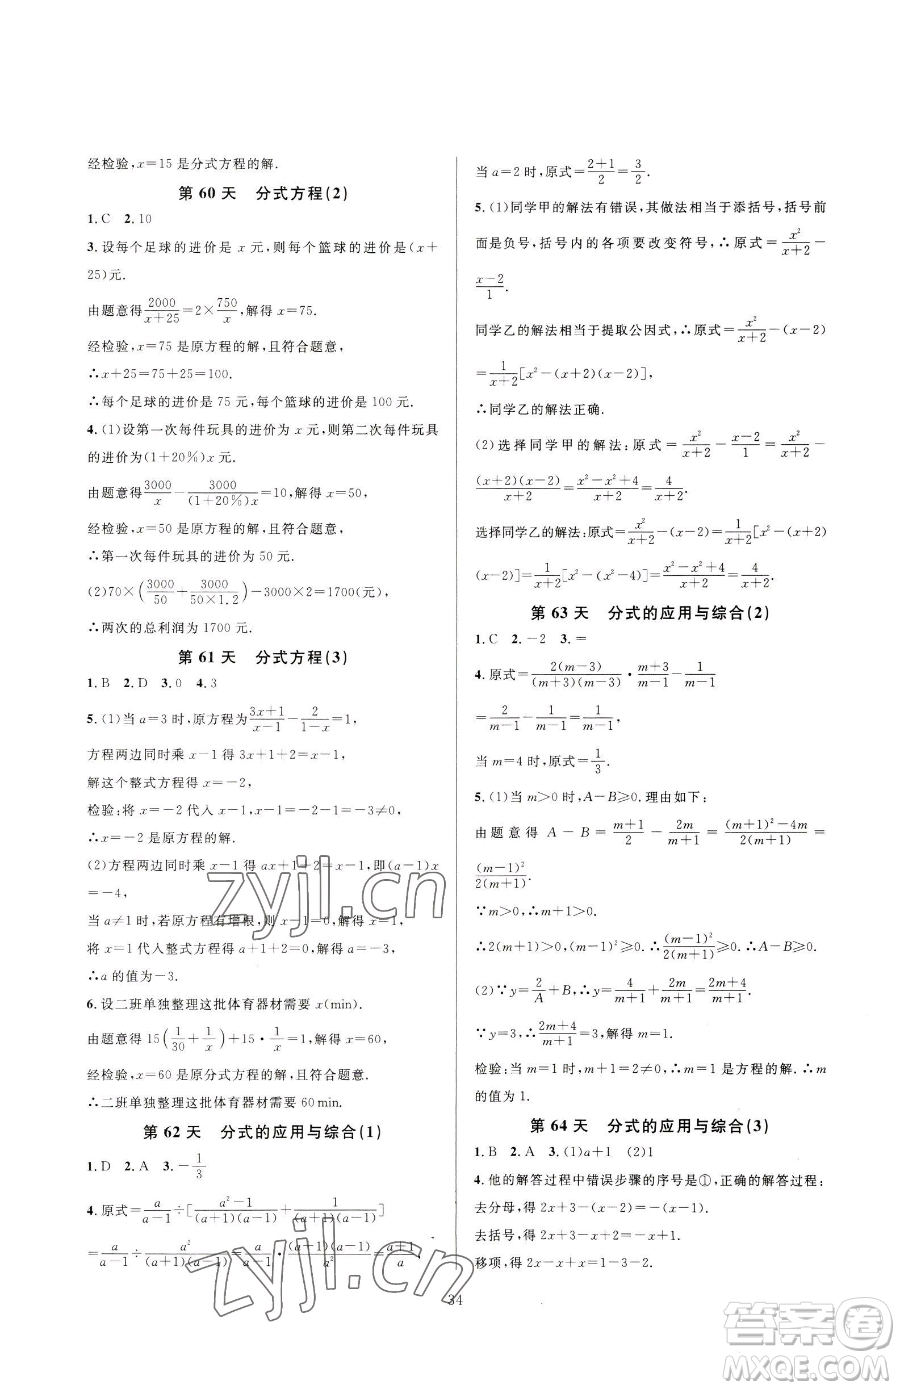 经检验,x=15是分式方程的解.
第 60 天　分式方程(2)
1.C　2.10
3.设每个足球的进价是 x 元,则每个篮球的进价是(x+
25)元.
由题意得2000/(x+25)=2×750/x,解得 x=75.
经检验,x=75 是原方程的解,且符合题意,
∴x+25=75+25=100.
∴每个足球的进价是 75 元,每个篮球的进价是 100 元.
4.(1)设第一次每件玩具的进价为 x 元,则第二次每件玩具
的进价为(1+20%)x 元.
由题意得3000/x-3000/((1+20%)x)=10,解得 x=50.
经检验,x=50 是原方程的解,且符合题意.
∴第一次每件玩具的进价为 50 元.
(2)70×(3000/50+3000/(50×1.2))-3000×2=1700(元).
∴两次的总利润为 1700 元.
第 61 天　分式方程(3)
1.B　2.D　3.0　4.3
5.(1)当 a=3 时,原方程为(3x+1)/(x-1)-2/(1-x)=1,
方程两边同时乘 x-1 得 3x+1+2=x-1,
解这个整式方程得 x=-2,
检验:将 x=-2 代入 x-1,x-1=-2-1=-3≠0,
∴x=-2 是原方程的解.
(2)方程两边同时乘 x-1 得 ax+1+2=x-1,即(a-1)x
=-4,
当 a≠1 时,若原方程有增根,则 x-1=0,
将 x=1 代入整式方程得 a+1+2=0,
∴a 的值为-3.
6.设二班单独整理这批体育器材需要 x(min).
由题意得 15(1/30+1/x)+15·1/x=1,解得 x=60,
经检验,x=60 是原分式方程的解,且符合题意.
∴二班单独整理这批体育器材需要 60 min.
第 62 天　分式的应用与综合(1)
1.D　2.A　3.-1/3
4.原式=a/(a-1)÷[(a²-1)/((a+1)(a-1))+1/((a+1)(a-1))]
=a/(a-1)÷a²/((a+1)(a-1))=a/(a-1)·(a+1)(a-1)/a²=(a+1)/a.
当 a=2 时,原式=(2+1)/2=3/2.
5.(1)同学甲的解法有错误,其做法相当于添括号,括号前
面是负号,括号内的各项要改变符号,∴原式=x²/(x+2)-
(x-2)/1.
同学乙的解法相当于提取公因式,∴原式=x²/(x+2)-(x-2)
=1/(x+2)[x²-(x+2)(x-2)],
∴同学乙的解法正确.
(2)选择同学甲的解法:原式=x²/(x+2)-(x-2)/1=x²/(x+2)-
(x+2)(x-2)/(x+2)=(x²-x²+4)/(x+2)=4/(x+2).
选择同学乙的解法:原式=x²/(x+2)-(x-2)=1/(x+2)[x²-(x+2)
(x-2)]=1/(x+2)[x²-(x²-4)]=(x²-x²+4)/(x+2)=4/(x+2).
第 63 天　分式的应用与综合(2)
1.C　2.-2　3.=
4.原式=2(m-3)/((m+3)(m-3))·(m+3)/(m-1)-1/(m-1)
=2/(m-1)-1/(m-1)=1/(m-1),
当 m=4 时,原式=1/3.
5.(1)当 m>0 时,A-B≥0.理由如下:
由题意得 A-B=(m+1)/2-2m/(m+1)=((m+1)²-4m)/(2(m+1))=
(m-1)²/(2(m+1)).
∵m>0,∴m+1>0.
∴2(m+1)>0,(m-1)²≥0.∴(m-1)²/(2(m+1))≥0.∴A-B≥0.
(2)∵y=2/A+B,∴y=4/(m+1)+2m/(m+1)=(2m+4)/(m+1).
∵y=3,∴(2m+4)/(m+1)=3,解得 m=1.
检验:当 m=1 时,m+1=2≠0,∴m=1 是方程的解.∴m
的值为 1.
第 64 天　分式的应用与综合(3)
1.B　2.A　3.(1)a+1　(2)1
4.他的解答过程中错误步骤的序号是①,正确的解答过程:
去分母,得 2x+3-(x-2)=-(x-1).
去括号,得 2x+3-x+2=-x+1.
移项,得 2x-x+x=1-3-2.
34
zyjl.cn
zyjl.cn
答案圈
MXQE.COM